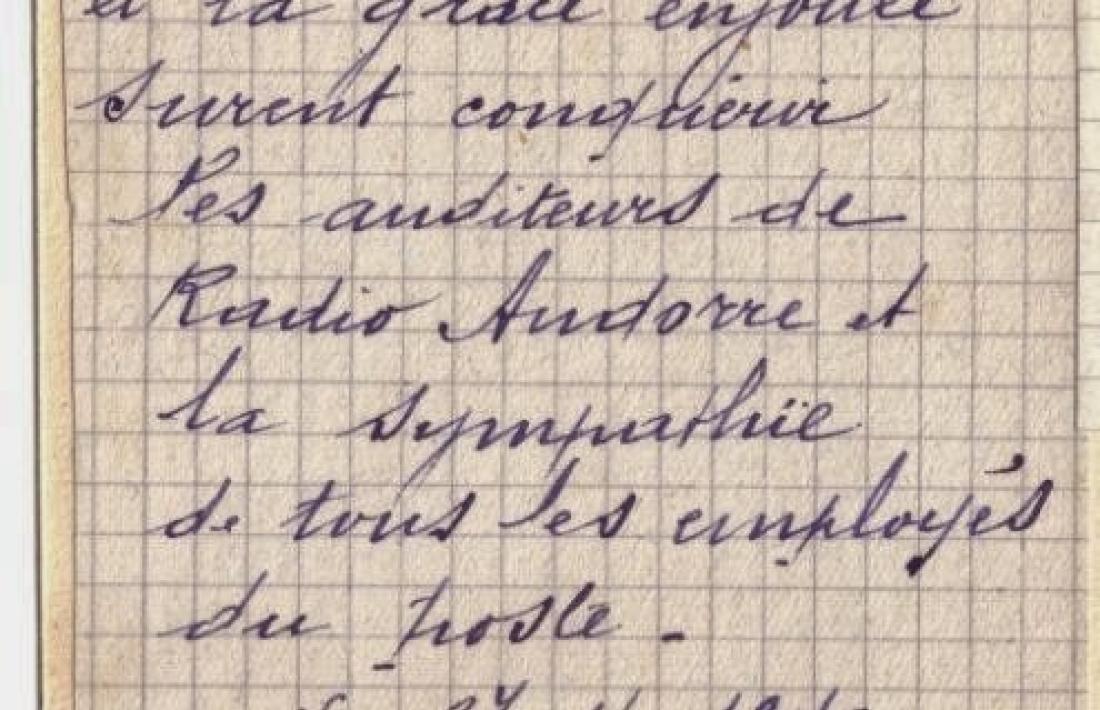 et la grâce enjouée
surent conquérir
les auditeurs de
Radio Andorre et
la sympathie
de tous les employés
du poste -